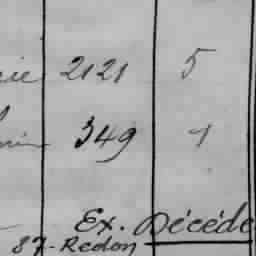 2121 5
349 1
Ex. Décédé
87-Redon